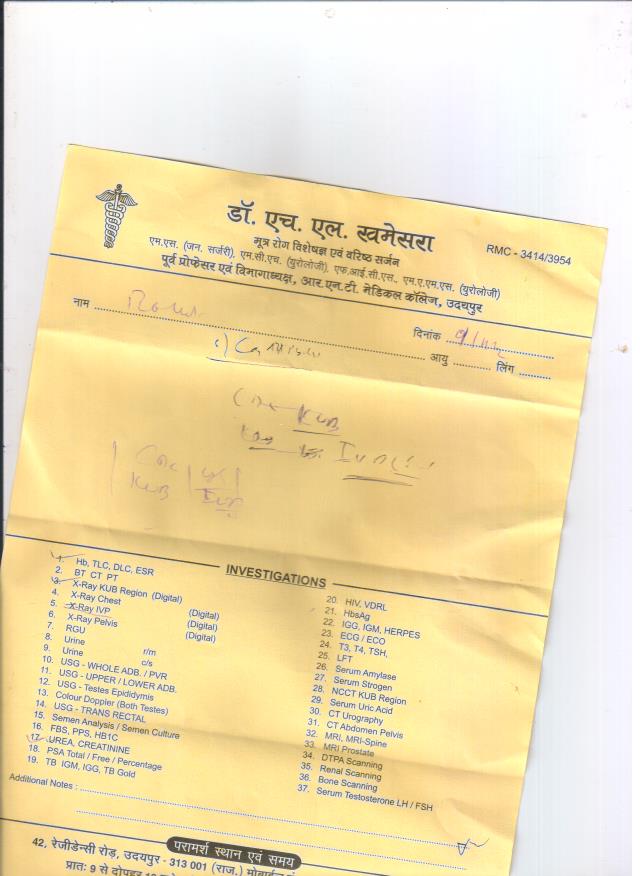 डॉ. एच. एल. खमेसरा
RMC - 3414/3954
मूत्र रोग विशेषज्ञ एवं वरिष्ठ सर्जन
एम.एस. (जन. सर्जरी), एम.सी.एच. (युरोलोजी), एफ.आई.सी.एस., एम.ए.एम.एस. (युरोलोजी)
पूर्व प्रोफेसर एवं विभागाध्यक्ष, आर.एन.टी. मेडिकल कॉलेज, उदयपुर
नाम
दिनांक
आयु लिंग
KUB
KUB
INVESTIGATIONS
1. Hb, TLC, DLC, ESR
2. BT CT PT
3. X-Ray KUB Region (Digital)
4. X-Ray Chest
5. X-Ray IVP (Digital)
6. X-Ray Pelvis (Digital)
7. RGU (Digital)
8. Urine r/m
9. Urine c/s
10. USG - WHOLE ADB. / PVR
11. USG - UPPER / LOWER ADB.
12. USG - Testes Epididymis
13. Colour Doppler (Both Testes)
14. USG - TRANS RECTAL
15. Semen Analysis / Semen Culture
16. FBS, PPS, HB1C
17. UREA, CREATININE
18. PSA Total / Free / Percentage
19. TB IGM, IGG, TB Gold
20. HIV, VDRL
21. HbsAg
22. IGG, IGM, HERPES
23. ECG / ECO
24. T3, T4, TSH,
25. LFT
26. Serum Amylase
27. Serum Strogen
28. NCCT KUB Region
29. Serum Uric Acid
30. CT Urography
31. CT Abdomen Pelvis
32. MRI, MRI-Spine
33. MRI Prostate
34. DTPA Scanning
35. Renal Scanning
36. Bone Scanning
37. Serum Testosterone LH / FSH
Additional Notes :
परामर्श स्थान एवं समय
42, रेजीडेन्सी रोड़, उदयपुर - 313 001 (राज.)
प्रातः 9 से